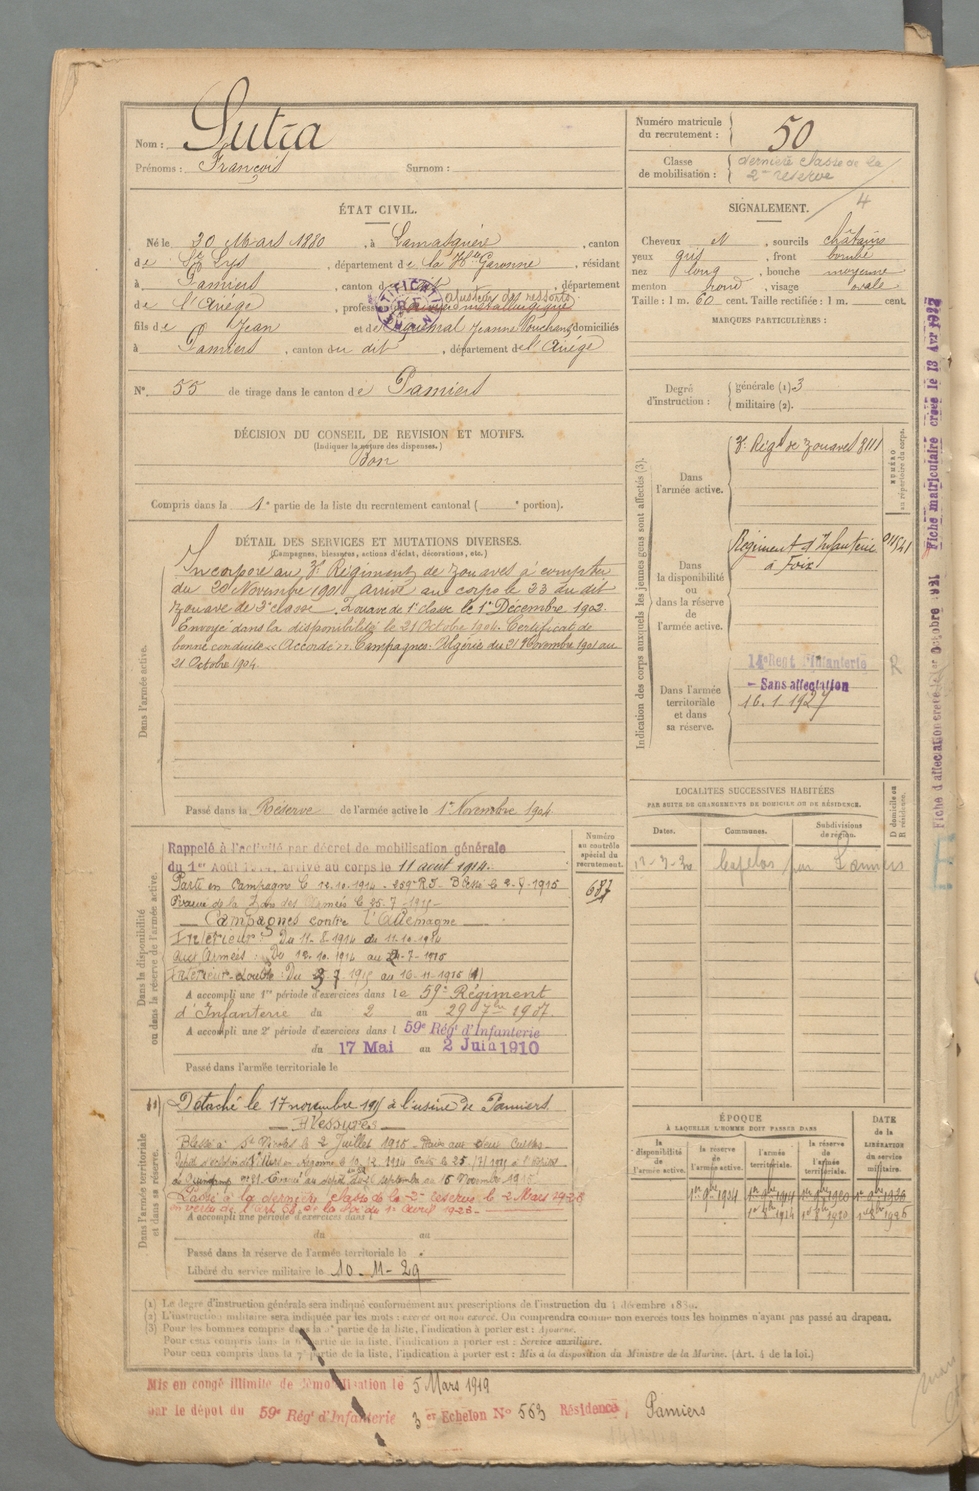 Nom : Sutra
Prénoms : François Surnom :
Numéro matricule du recrutement : 50
Classe de mobilisation : dernière classe de la 2e réserve
4
ÉTAT CIVIL.
Né le 30 Mars 1880, à Lamasquère, canton
de St Lys, département de la Hte Garonne, résidant
à Pamiers, canton du dit, département
de l'Ariège, profession ajusteur des ressorts
ouvrier métallurgique
fils de Jean et de Jeanne domiciliés
à Pamiers, canton du dit, département de l'Ariège
No. 55 de tirage dans le canton de Pamiers
SIGNALEMENT.
Cheveux et, sourcils châtains
yeux gris, front bombé
nez long, bouche moyenne
menton rond, visage ovale
Taille : 1 m. 60 cent. Taille rectifiée : 1 m. cent.
MARQUES PARTICULIÈRES :
Degré d'instruction : générale (1). 3
militaire (2).
DÉCISION DU CONSEIL DE REVISION ET MOTIFS.
(Indiquer la nature des dispenses.)
Bon
Compris dans la 1e partie de la liste du recrutement cantonal ( e portion).
DÉTAIL DES SERVICES ET MUTATIONS DIVERSES.
(Campagnes, blessures, actions d'éclat, décorations, etc.)
Dans l'armée active.
Incorporé au 3e Régiment de Zouaves à compter
du 20 Novembre 1901 arrivé au corps le 23 du dit
Zouave de 2e classe. Zouave de 1e classe le 1er Décembre 1903.
Envoyé dans la disponibilité le 21 Octobre 1904. Certificat de
bonne conduite « Accordé ». Campagnes: Algérie du 21 Novembre 1901 au
21 Octobre 1904.
Passé dans la Réserve de l'armée active le 1er Novembre 1904
Indication des corps auxquels les jeunes gens sont affectés (3).
NUMÉRO au répertoire du corps.
Dans l'armée active. 3e Régt de Zouaves 8111
Dans la disponibilité ou dans la réserve de l'armée active. Régiment d'Infanterie à Foix
Dans l'armée territoriale et dans sa réserve. 14e Regt d'Infanterie R
- Sans affectation
16.1.1927
LOCALITÉS SUCCESSIVES HABITÉES
PAR SUITE DE CHANGEMENTS DE DOMICILE OU DE RÉSIDENCE.
Dates. Communes. Subdivisions de région. D domicile ou R résidence.
par Pamiers
Dans la disponibilité ou dans la réserve de l'armée active.
Numéro au contrôle spécial du recrutement.
687
Rappelé à l'activité par décret de mobilisation générale
du 1er Août 1914, arrivé au corps le 11 août 1914.
Parti en Campagne le 12.10.1914 - 259e R.I. Blessé le 2-7-1915
Campagnes contre l'Allemagne
Intérieur : Du 11-8-1914 au 11.10.1914
Aux Armées : Du 12.10.1914 au 7-1915
Intérieur double : Du 7 1915 au 16-11-1915 (4)
A accompli une 1re période d'exercices dans le 59e Régiment
d'Infanterie du 2 au 29 7bre 1907.
A accompli une 2e période d'exercices dans l 59e Régt d'Infanterie
du 17 Mai au 2 Juin 1910
Passé dans l'armée territoriale le
Dans l'armée territoriale et dans sa réserve.
Détaché le 17 novembre 1915 à l'usine de Pamiers
Blessures
Blessé à le 2 Juillet 1915
Passé à la dernière classe de la 2e réserve le 2 Mars 1928
en vertu de l'art 58 de la loi du 1er Avril 1923
A accompli une période d'exercices dans l
du au
Passé dans la réserve de l'armée territoriale le
Libéré du service militaire le 10-11-29
ÉPOQUE
À LAQUELLE L'HOMME DOIT PASSER DANS
la disponibilité de l'armée active. la réserve de l'armée active. l'armée territoriale. la réserve de l'armée territoriale.
DATE de la LIBÉRATION du service militaire.
1er 9bre 1904 1er 9bre 1914 1er 9bre 1920 1er 9bre 1926
(1) Le degré d'instruction générale sera indiqué conformément aux prescriptions de l'instruction du 4 décembre 1889.
(2) L'instruction militaire sera indiquée par les mots : exercé ou non exercé. On comprendra comme non exercés tous les hommes n'ayant pas passé au drapeau.
(3) Pour les hommes compris dans la partie de la liste, l'indication à porter est : Ajourné.
Pour ceux compris dans la 6e partie de la liste, l'indication à porter est : Service auxiliaire.
Pour ceux compris dans la 7e partie de la liste, l'indication à porter est : Mis à la disposition du Ministre de la Marine. (Art. 4 de la loi.)
Mis en congé illimité de démobilisation le 5 Mars 1919
par le dépôt du 59e Régt d'Infanterie 3 er Echelon No 563 Résidence, Pamiers
Fiche d'affectation créée le 1er Octobre 1921
Fiche matriculaire créée le 13 Avr 1922